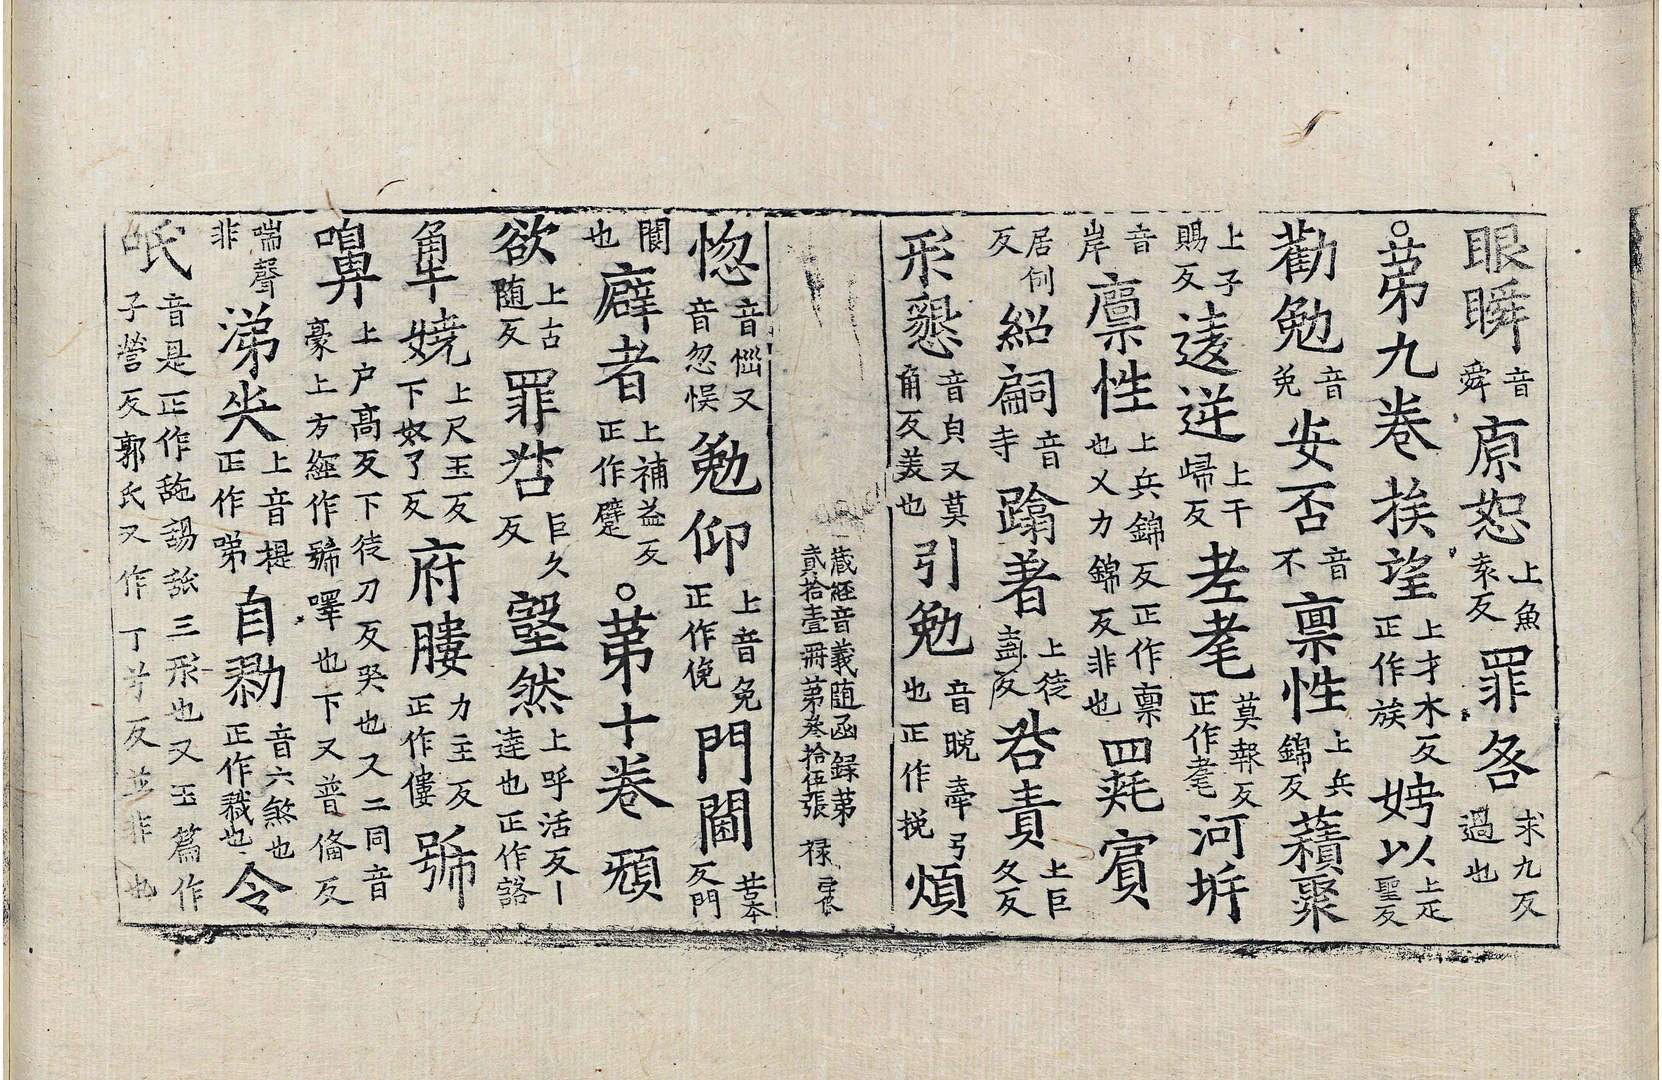 眼瞬音舜原恕上魚袁反罪咎求九反過也
○苐九卷挨望上才木反正作族娉以上疋聖反
勸勉音免安否音不禀性上兵錦反蘊聚
上子賜反逶迸上干歸反耂耄莫報反正作耄河圻
音岸禀性上兵錦反正作禀也又力錦反非也四耗賔
居例反紹嗣音寺蹹著上徒盍反咎責上巨久反
皃懇音貞又莫角反羙也引勉音晚牽弓也正作挽煩
藏經音義随函録苐貳拾壹冊苐叄拾伍張 禄
惚音惱又音忽悮勉仰上音免正作俛門閫苦本反門
閫也癖者上補益反正作躄○苐十卷頑
欲上古随反罪咎巨久反豁然上呼活反達也正作豁
隼嬈上尺玉反下奴了反府膢力主反正作僂號
嘷上户高反下徒刀反哭也又二同音豪上方經作號嘷也下又普俻反
喘聲非涕哭上音提正作啼自勠音六煞也正作戮也令
呧音是正作䑛䑛䑛三形也又玉篇作子䇾反郭氏又作丁兮反並非也